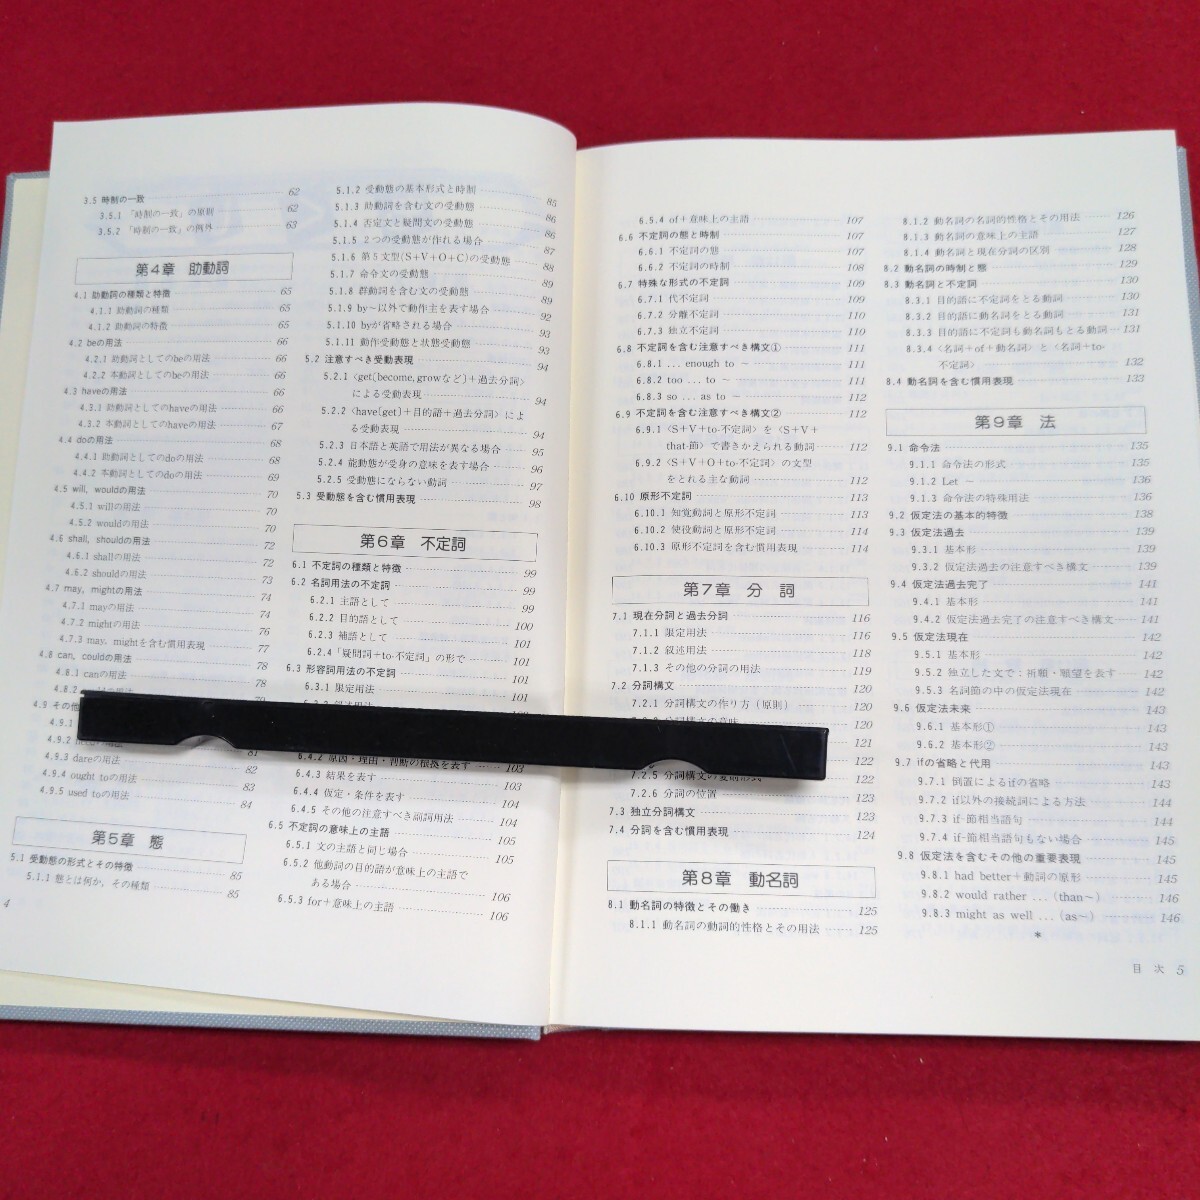 3.5 時制の一致 62
3.5.1 「時制の一致」の原則 62
3.5.2 「時制の一致」の例外 63
第4章 助動詞
4.1 助動詞の種類と特徴 65
4.1.1 助動詞の種類 65
4.1.2 助動詞の特徴 65
4.2 beの用法 66
4.2.1 助動詞としてのbeの用法 66
4.2.2 本動詞としてのbeの用法 66
4.3 haveの用法 66
4.3.1 助動詞としてのhaveの用法 66
4.3.2 本動詞としてのhaveの用法 67
4.4 doの用法 68
4.4.1 助動詞としてのdoの用法 68
4.4.2 本動詞としてのdoの用法 69
4.5 will, wouldの用法 70
4.5.1 willの用法 70
4.5.2 wouldの用法 70
4.6 shall, shouldの用法 72
4.6.1 shallの用法 72
4.6.2 shouldの用法 73
4.7 may, mightの用法 74
4.7.1 mayの用法 74
4.7.2 mightの用法 76
4.7.3 may, mightを含む慣用表現 77
4.8 can, couldの用法 78
4.8.1 canの用法 78
4.8.2
4.9 その他
4.9.1
4.9.2 81
4.9.3 dareの用法 82
4.9.4 ought toの用法 83
4.9.5 used toの用法 84
第5章 態
5.1 受動態の形式とその特徴 85
5.1.1 態とは何か，その種類 85
4
5.1.2 受動態の基本形式と時制 85
5.1.3 助動詞を含む文の受動態 86
5.1.4 否定文と疑問文の受動態 86
5.1.5 2つの受動態が作れる場合 87
5.1.6 第5文型(S+V+O+C)の受動態 88
5.1.7 命令文の受動態 89
5.1.8 群動詞を含む文の受動態 89
5.1.9 by〜以外で動作主を表す場合 92
5.1.10 byが省略される場合 93
5.1.11 動作受動態と状態受動態 93
5.2 注意すべき受動表現 94
5.2.1 〈get[become, growなど]+過去分詞〉
による受動表現 94
5.2.2 〈have[get]+目的語+過去分詞〉によ
る受動表現 94
5.2.3 日本語と英語で用法が異なる場合 95
5.2.4 能動態が受身の意味を表す場合 96
5.2.5 受動態にならない動詞 97
5.3 受動態を含む慣用表現 98
第6章 不定詞
6.1 不定詞の種類と特徴 99
6.2 名詞用法の不定詞 99
6.2.1 主語として 99
6.2.2 目的語として 100
6.2.3 補語として 101
6.2.4 「疑問詞+to-不定詞」の形で 101
6.3 形容詞用法の不定詞 101
6.3.1 限定用法 101
6.4.2 原因・理由・判断の根拠を表す 103
6.4.3 結果を表す 103
6.4.4 仮定・条件を表す 104
6.4.5 その他の注意すべき副詞用法 104
6.5 不定詞の意味上の主語 105
6.5.1 文の主語と同じ場合 105
6.5.2 他動詞の目的語が意味上の主語で
ある場合 106
6.5.3 for+意味上の主語 106
6.5.4 of+意味上の主語 107
6.6 不定詞の態と時制 107
6.6.1 不定詞の態 107
6.6.2 不定詞の時制 108
6.7 特殊な形式の不定詞 109
6.7.1 代不定詞 109
6.7.2 分離不定詞 110
6.7.3 独立不定詞 110
6.8 不定詞を含む注意すべき構文① 111
6.8.1 … enough to 〜 111
6.8.2 too … to 〜 111
6.8.3 so … as to 〜 112
6.9 不定詞を含む注意すべき構文② 112
6.9.1 〈S+V+to-不定詞〉を〈S+V+
that-節〉で書きかえられる動詞 112
6.9.2 〈S+V+O+to-不定詞〉の文型
をとれる主な動詞 112
6.10 原形不定詞 113
6.10.1 知覚動詞と原形不定詞 113
6.10.2 使役動詞と原形不定詞 114
6.10.3 原形不定詞を含む慣用表現 114
第7章 分 詞
7.1 現在分詞と過去分詞 116
7.1.1 限定用法 116
7.1.2 叙述用法 118
7.1.3 その他の分詞の用法 119
7.2 分詞構文 120
7.2.1 分詞構文の作り方(原則) 120
7.2.2 分詞構文の意味 120
121
122
7.2.5 分詞構文の慣用形式 122
7.2.6 分詞の位置 123
7.3 独立分詞構文 123
7.4 分詞を含む慣用表現 124
第8章 動名詞
8.1 動名詞の特徴とその働き 125
8.1.1 動名詞の動詞的性格とその用法 125
8.1.2 動名詞の名詞的性格とその用法 126
8.1.3 動名詞の意味上の主語 127
8.1.4 動名詞と現在分詞の区別 128
8.2 動名詞の時制と態 129
8.3 動名詞と不定詞 130
8.3.1 目的語に不定詞をとる動詞 130
8.3.2 目的語に動名詞をとる動詞 131
8.3.3 目的語に不定詞も動名詞もとる動詞 131
8.3.4 〈名詞+of+動名詞〉と〈名詞+to-
不定詞〉 132
8.4 動名詞を含む慣用表現 133
第9章 法
9.1 命令法 135
9.1.1 命令法の形式 135
9.1.2 Let 〜 136
9.1.3 命令法の特殊用法 136
9.2 仮定法の基本的特徴 138
9.3 仮定法過去 139
9.3.1 基本形 139
9.3.2 仮定法過去の注意すべき構文 139
9.4 仮定法過去完了 141
9.4.1 基本形 141
9.4.2 仮定法過去完了の注意すべき構文 141
9.5 仮定法現在 142
9.5.1 基本形 142
9.5.2 独立した文で：祈願・願望を表す 142
9.5.3 名詞節の中の仮定法現在 142
9.6 仮定法未来 143
9.6.1 基本形① 143
9.6.2 基本形② 143
9.7 ifの省略と代用 143
9.7.1 倒置によるifの省略 143
9.7.2 if以外の接続詞による方法 144
9.7.3 if-節相当語句 144
9.7.4 if-節相当語句もない場合 145
9.8 仮定法を含むその他の重要表現 145
9.8.1 had better+動詞の原形 145
9.8.2 would rather …(than〜) 146
9.8.3 might as well …(as〜) 146
*
目 次 5